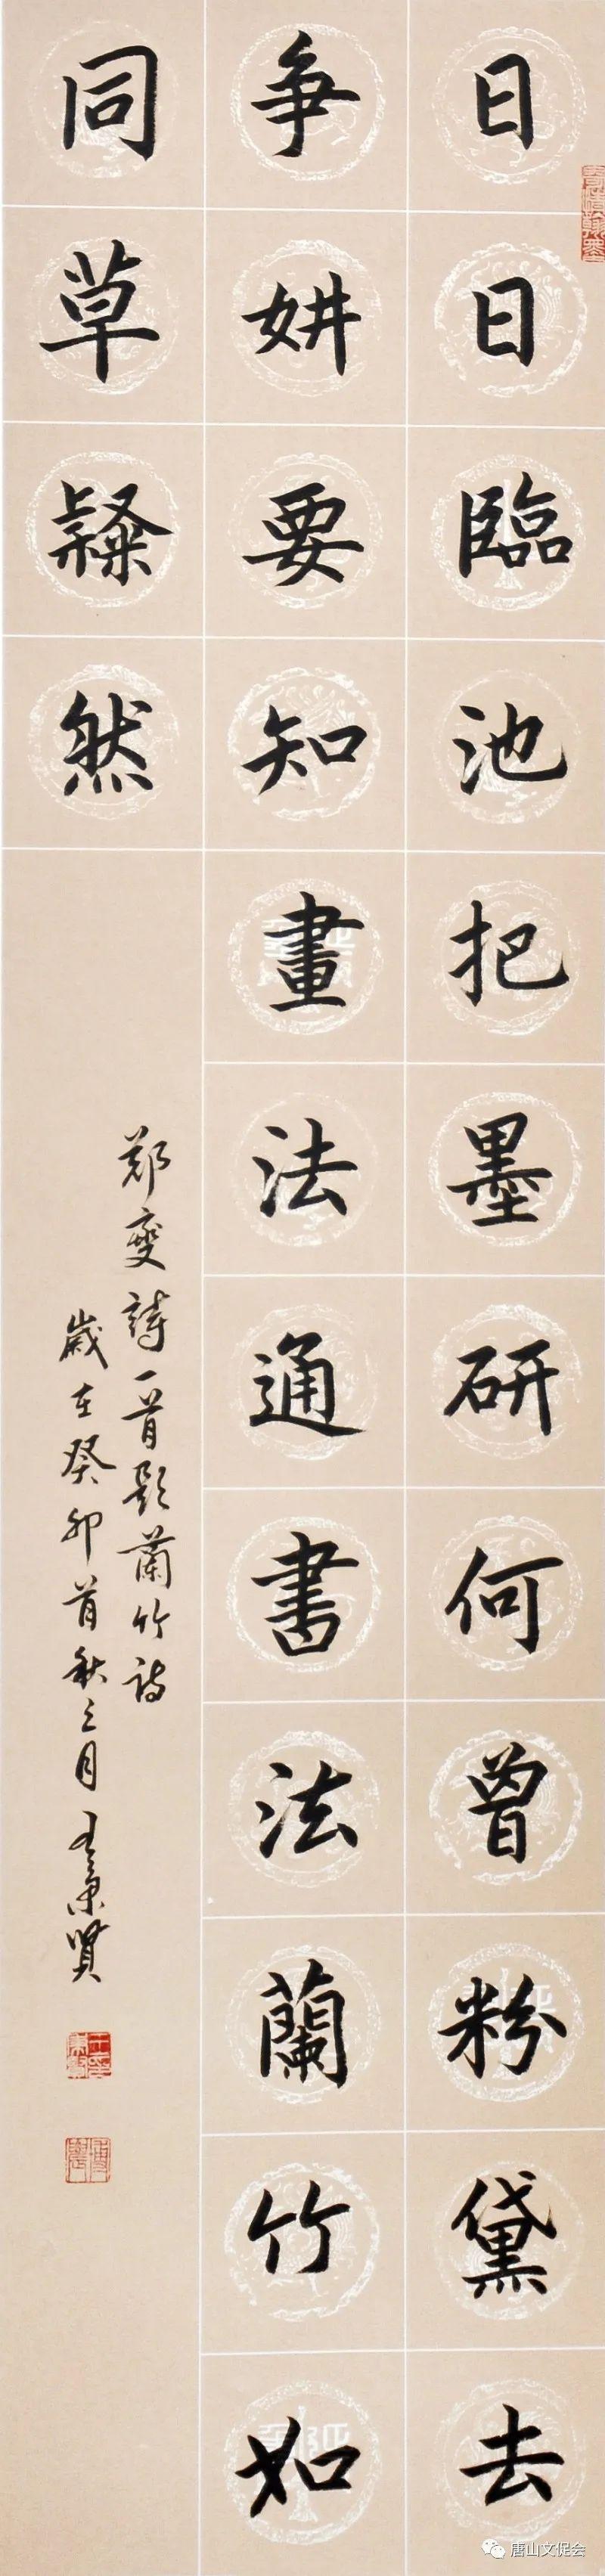 日日臨池把墨研何曾粉黛去
爭妍要知畫法通書法蘭竹如
同草隸然
郑燮詩一首題蘭竹詩
歲在癸卯首秋之月王秉賢
唐山文促会